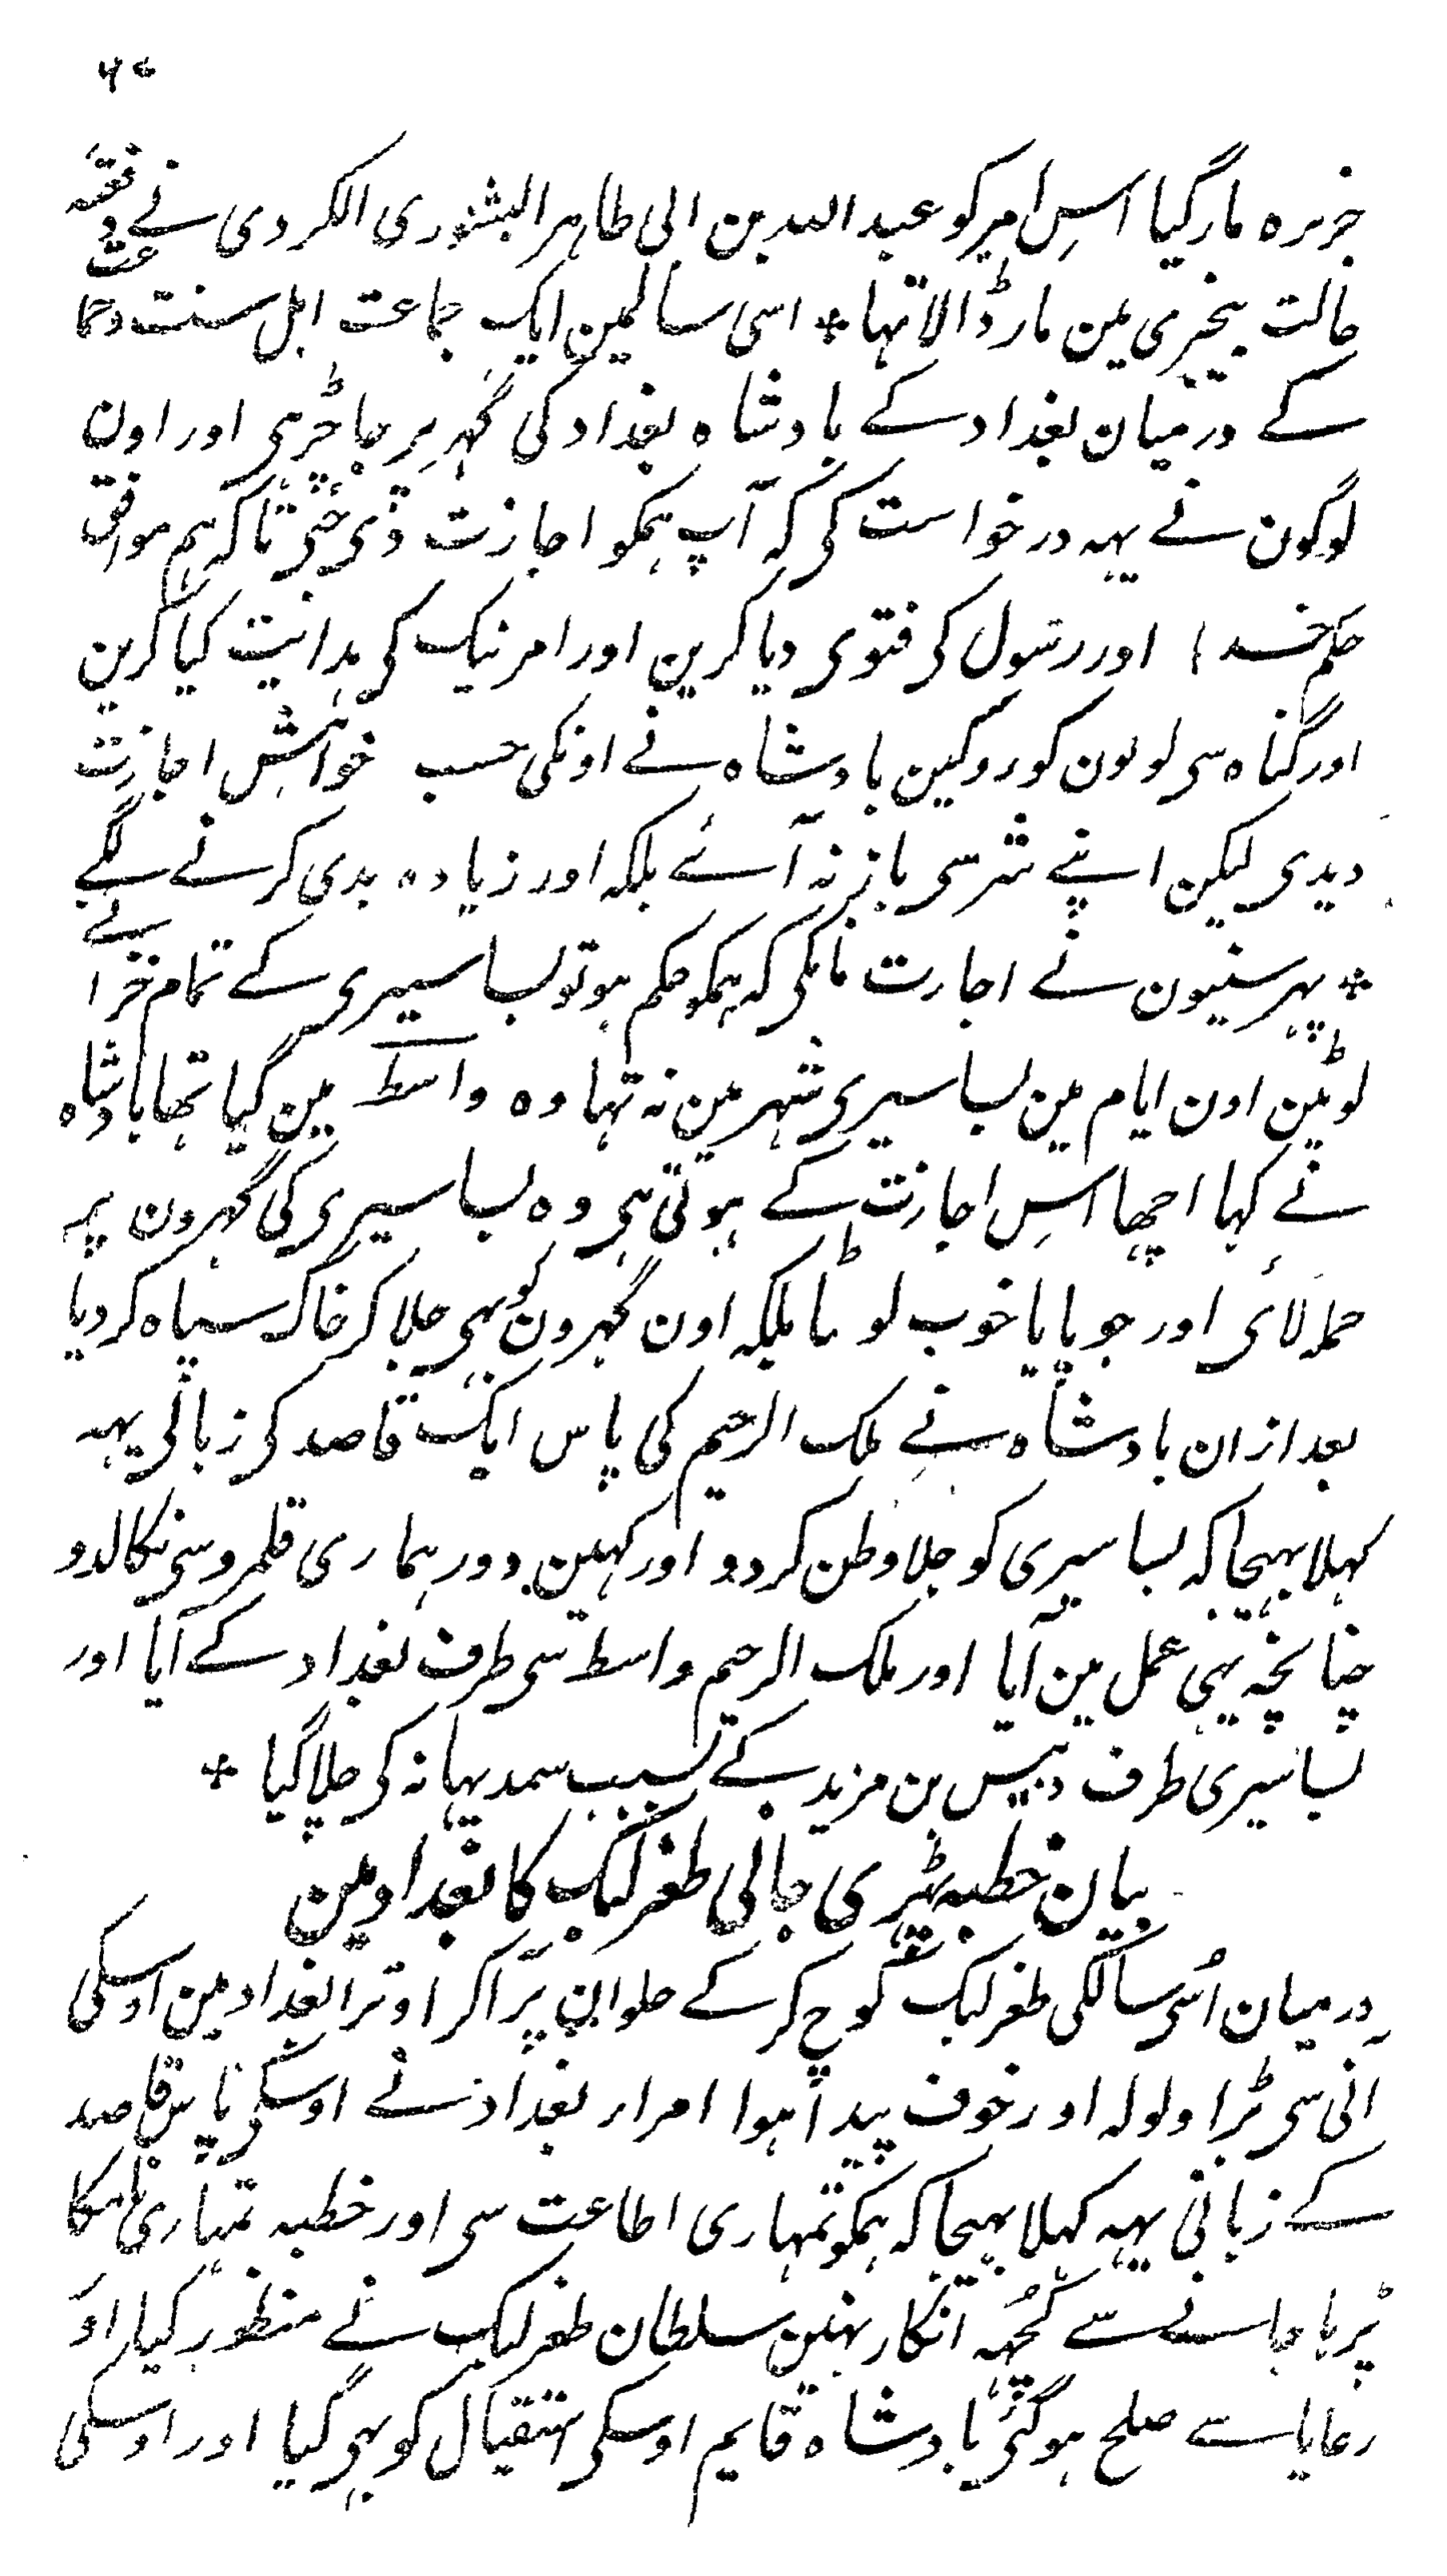 ۶۷
جزیرہ مار گیا اسِ امیر کو عبد اللہ بن ابی طاہر البشنوری الکردی نے دفعتہً
حالت بیخبری مین مار ڈالا تہا * اسی سالمین ایک جماعت اہل سنت وجماعت
کے درمیان بغداد کے بادشاہ بغداد کی گہر پر جا چڑہی اور اون
لوگون نے یہہ درخواست کی کہ آپ ہمکو اجازت دی جئی تاکہ ہم موافق
حکم خدا اور رسول کی فتوی دیا کرین اور امر نیک کی ہدایت کیا کرین
اور گناہ سی لوگون کو روکین بادشاہ نے اونکی حسب خواہش اجازت
دیدی لیکن اپنے شر سی باز نہ آئے بلکہ اور زیادہ بدی کرنے لگے
* پہر سنیون نے اجازت مانگی کہ ہمکو حکم ہو تو بساسیری کے تمام خزانے
لوٹین اون ایام مین بساسیری شہر مین نہ تہا وہ واسط مین گیا تھا بادشاہ
نے کہا اچھا اسِ اجازت کے ہوتی ہی وہ بساسیری کی گہرون پر
حملہ لائی اور جو پایا خوب لوٹا بلکہ اون گہرون کو بہی جلا کر خاک سیاہ کر دیا
بعد ازان بادشاہ نے ملک الرحیم کی پاس ایک قاصد کی زبانی یہہ
کہلا بہیجا کہ بساسیری کو جلاوطن کردو اور کہین دور ہماری قلمرو سی نکالدو
چنانچہ یہی عمل مین آیا اور ملک الرحیم واسط سی طرف بغداد کے آیا اور
بساسیری طرف دبیس بن مزید کے بسبب سمدہیانہ کی چلا گیا *
بیان خطبہ پڑہی جانی طغرلبک کا بغداد مین
درمیان اُسی سالکی طغرلبک کوچ کرکے حلوان پر آکر اوترا بغداد مین اوسکی
آنی سی بڑا ولولہ اور خوف پیدا ہوا امراء بغداد نے اوسکی پاس قاصد
کے زبانی یہہ کہلا بہیجا کہ ہمکو تمہاری اطاعت سی اور خطبہ تمہاری نامکا
پڑہا جانے سے کچُہہ انکار نہین سلطان طغرلبک نے منظور کیا اور
رعایا سے صلح ہوگئی بادشاہ قایم اوسکی استقبال کو بہی گیا اور اوسکی